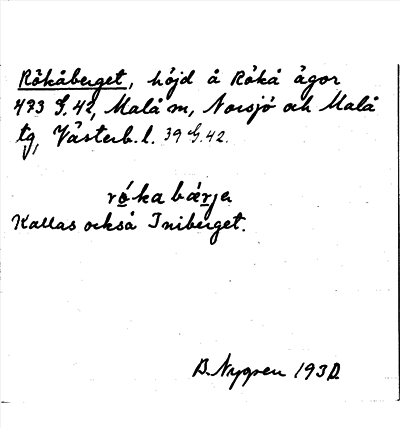 Rökåberget, höjd å Rökå ägor
433 G.42, Malå m, Norsjö och Malå
tg, Västerb. l. 39 G.42.
röka bærje
Kallas också Iniberget.
B. Nygren 193